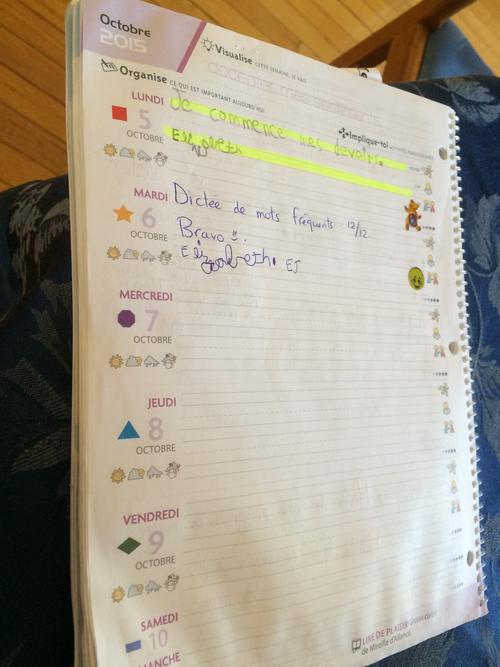 Octobre
2015
Visualise CETTE SEMAINE, JE VAIS
accepter mes
Organise CE QUI EST IMPORTANT AUJOURD'HUI
Implique-toi
LUNDI
5
OCTOBRE
Je commence mes devoirs.
MARDI
6
OCTOBRE
Dictée de mots fréquents 12/12
Bravo
EJ
MERCREDI
7
OCTOBRE
JEUDI
8
OCTOBRE
VENDREDI
9
OCTOBRE
SAMEDI
10
LIRE DE PLAISIR
de Mireille d'Allancé